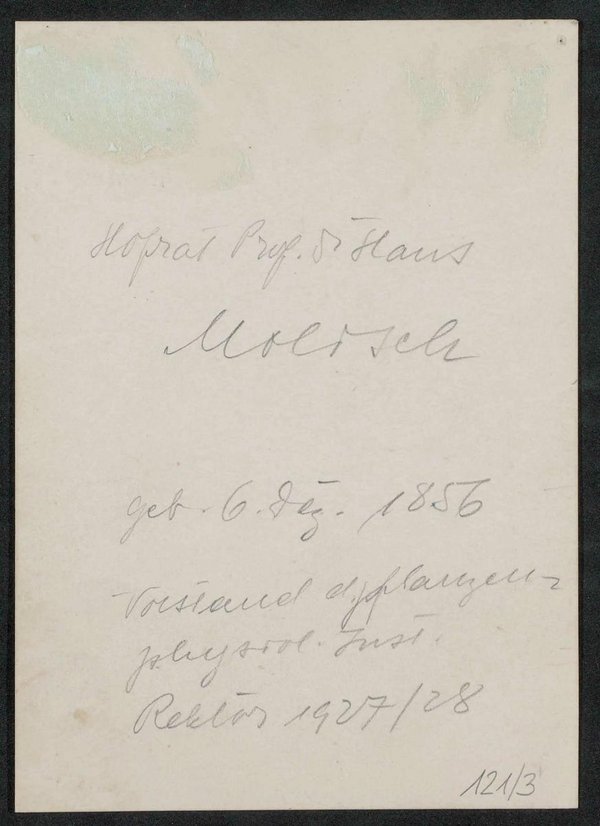 Hofrat Prof. Dr Hans
Molisch
geb. 6. Dez. 1856
Vorstand d. pflanzen-
physiol. Inst.
Rektor 1927/28
121/3